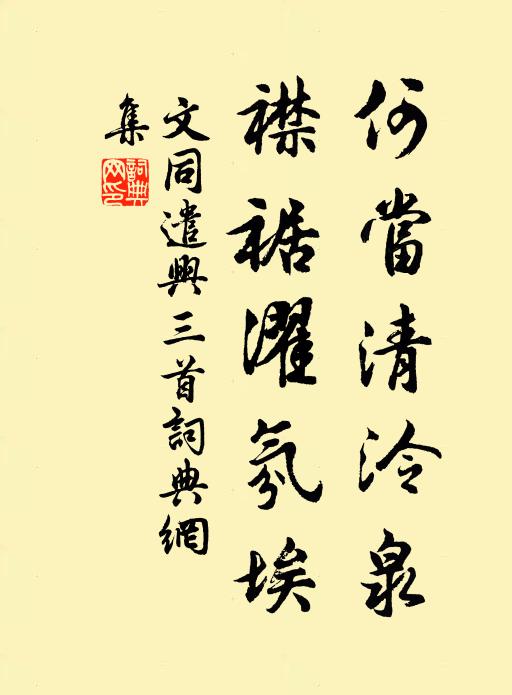 何當清泠泉
襟裾濯氛埃
文同遣興三首詞典網
集
詞典網印